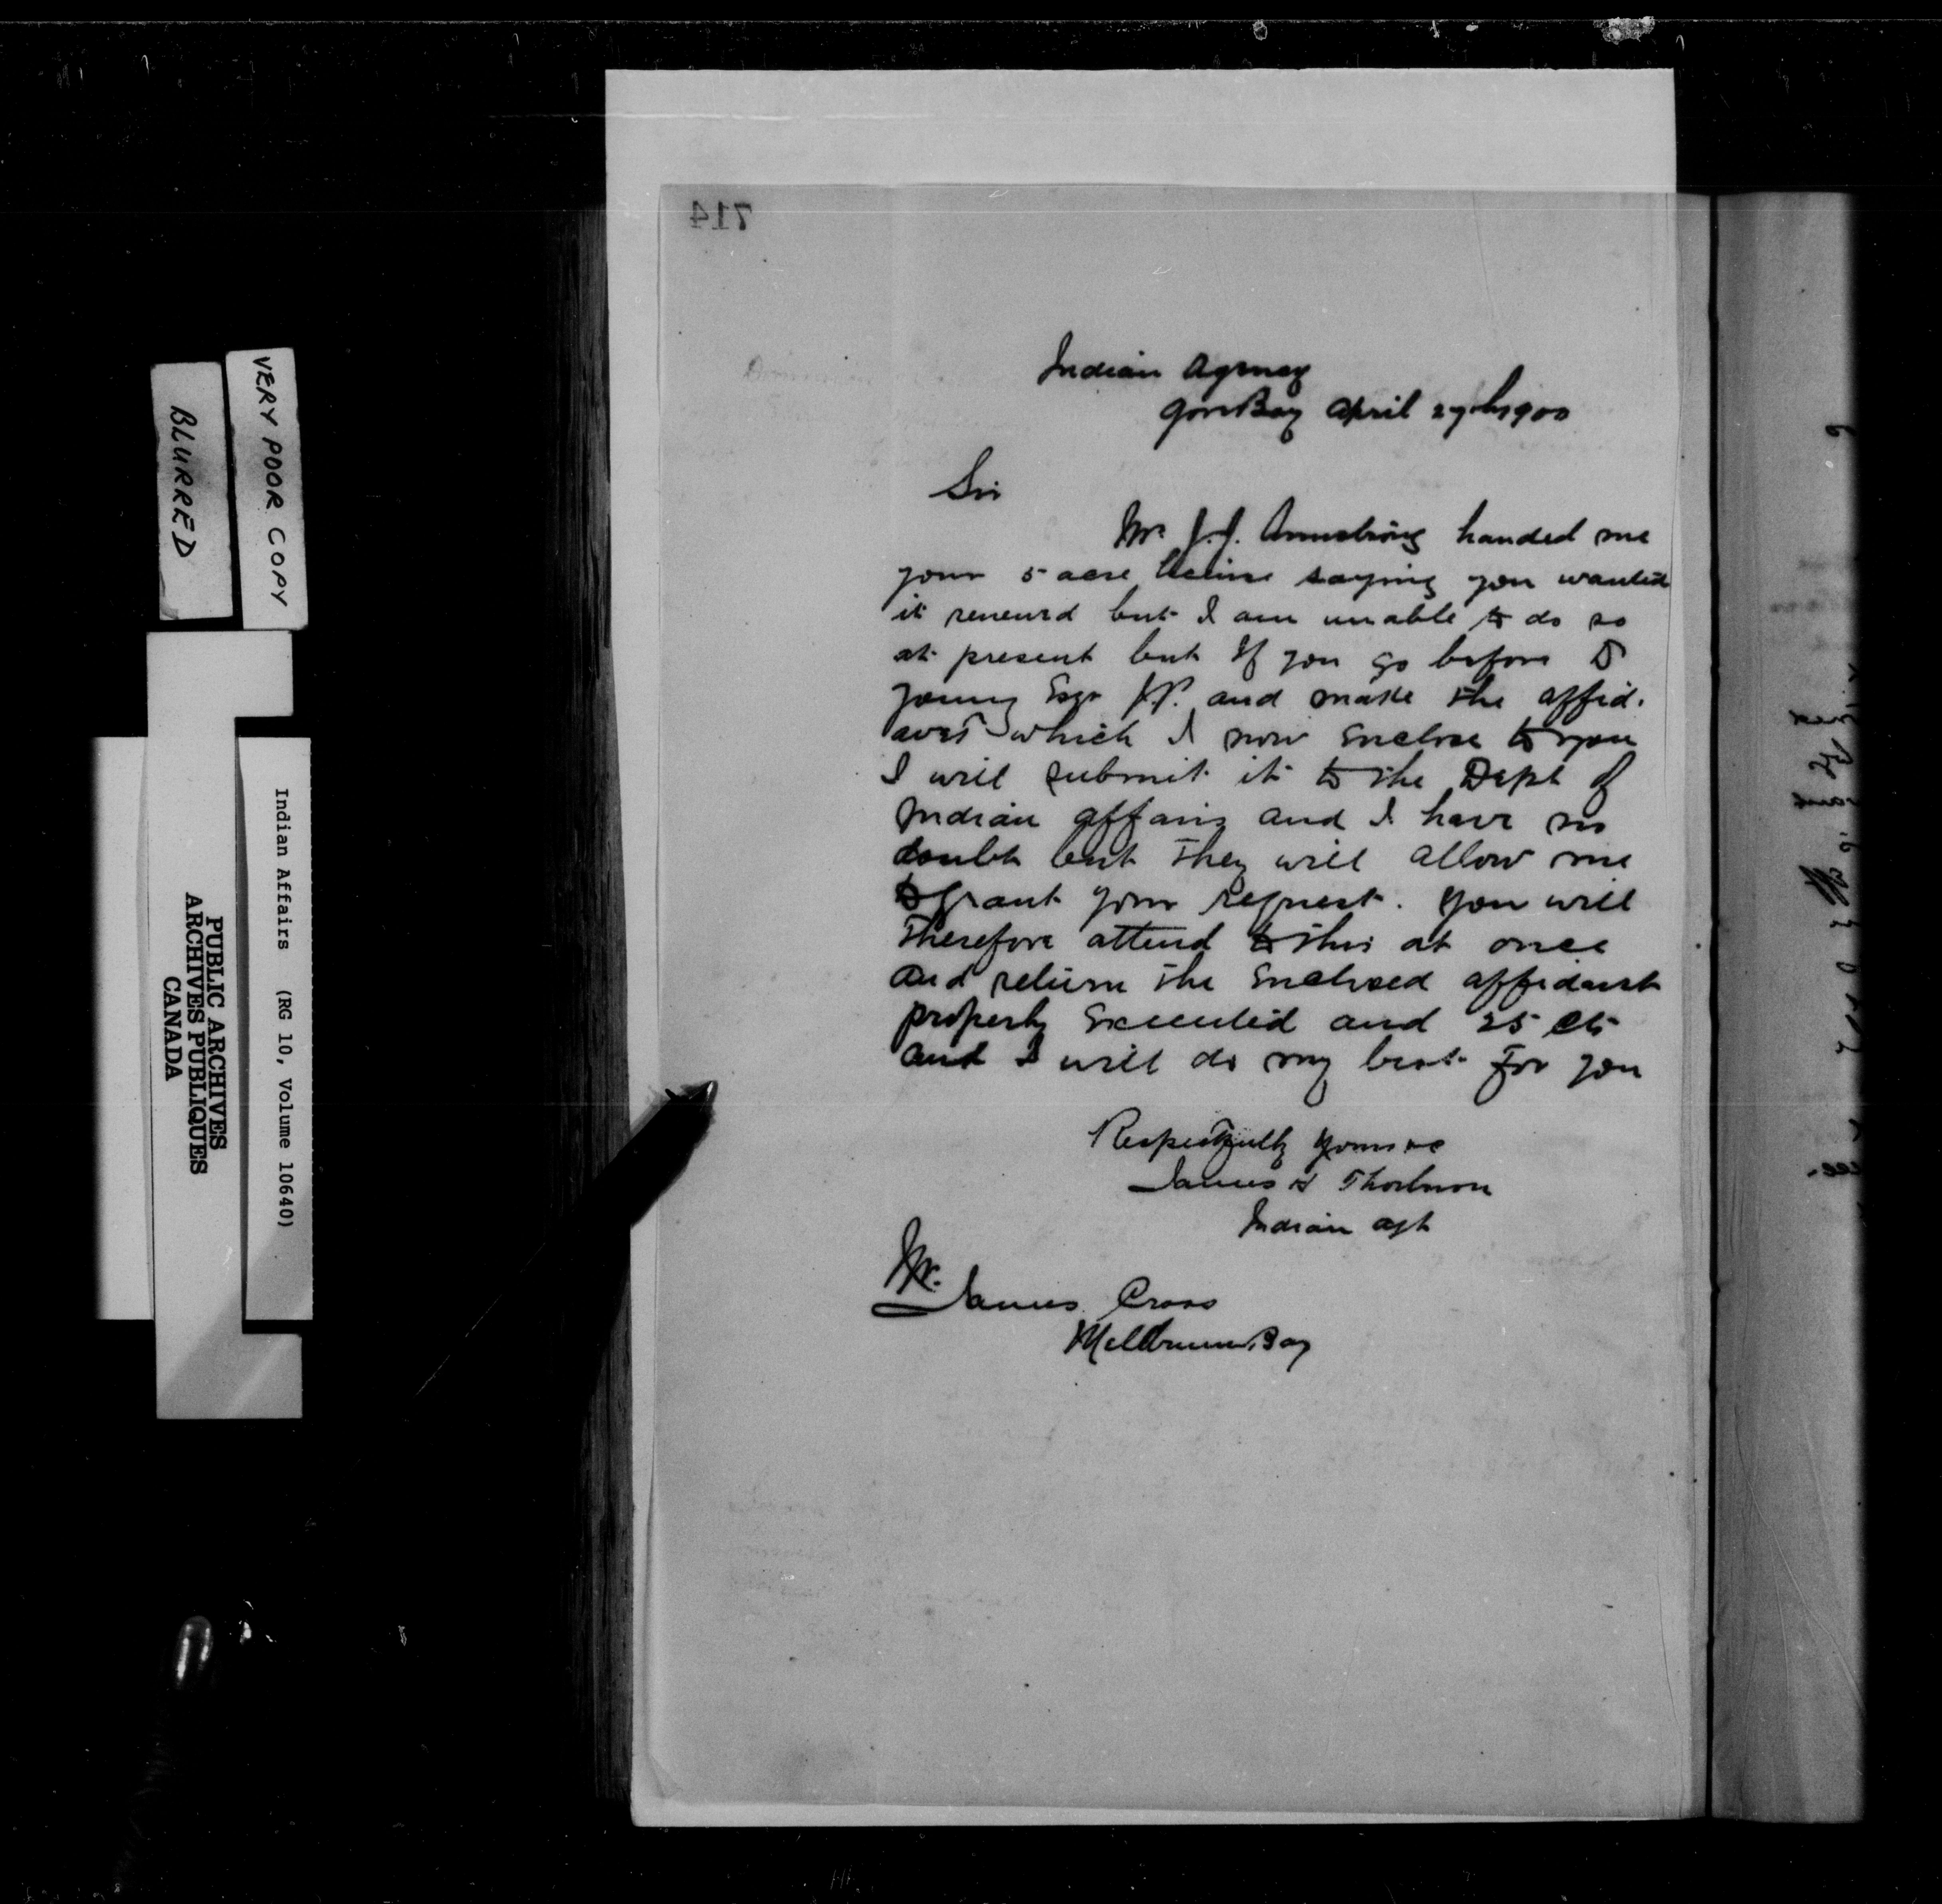 714
Indian Agency
Gore Bay April 27th 1900
Sir
Mr. J.J. Armstrong handed me
your 5 acre license saying you wanted
it renewd but I am unable to do so
at present but If you go before D
young Esqr J.P. and make the affid.
avet which I now Enclose to you
I will submit it to the Dept of
Indian affairs and I have no
doubt but they will allow me
to grant your request. you will
Therefore attend to this at once
and return the Enclosed affidavit
properly Executed and 25 cts
and I will do my best for you
Respectfully yours &c
James H Thorburn
Indian agt
Mr.
James Cross
Meldrum Bay
VERY POOR COPY
BLURRED
Indian Affairs (RG 10, Volume 10640)
PUBLIC ARCHIVES
ARCHIVES PUBLIQUES
CANADA